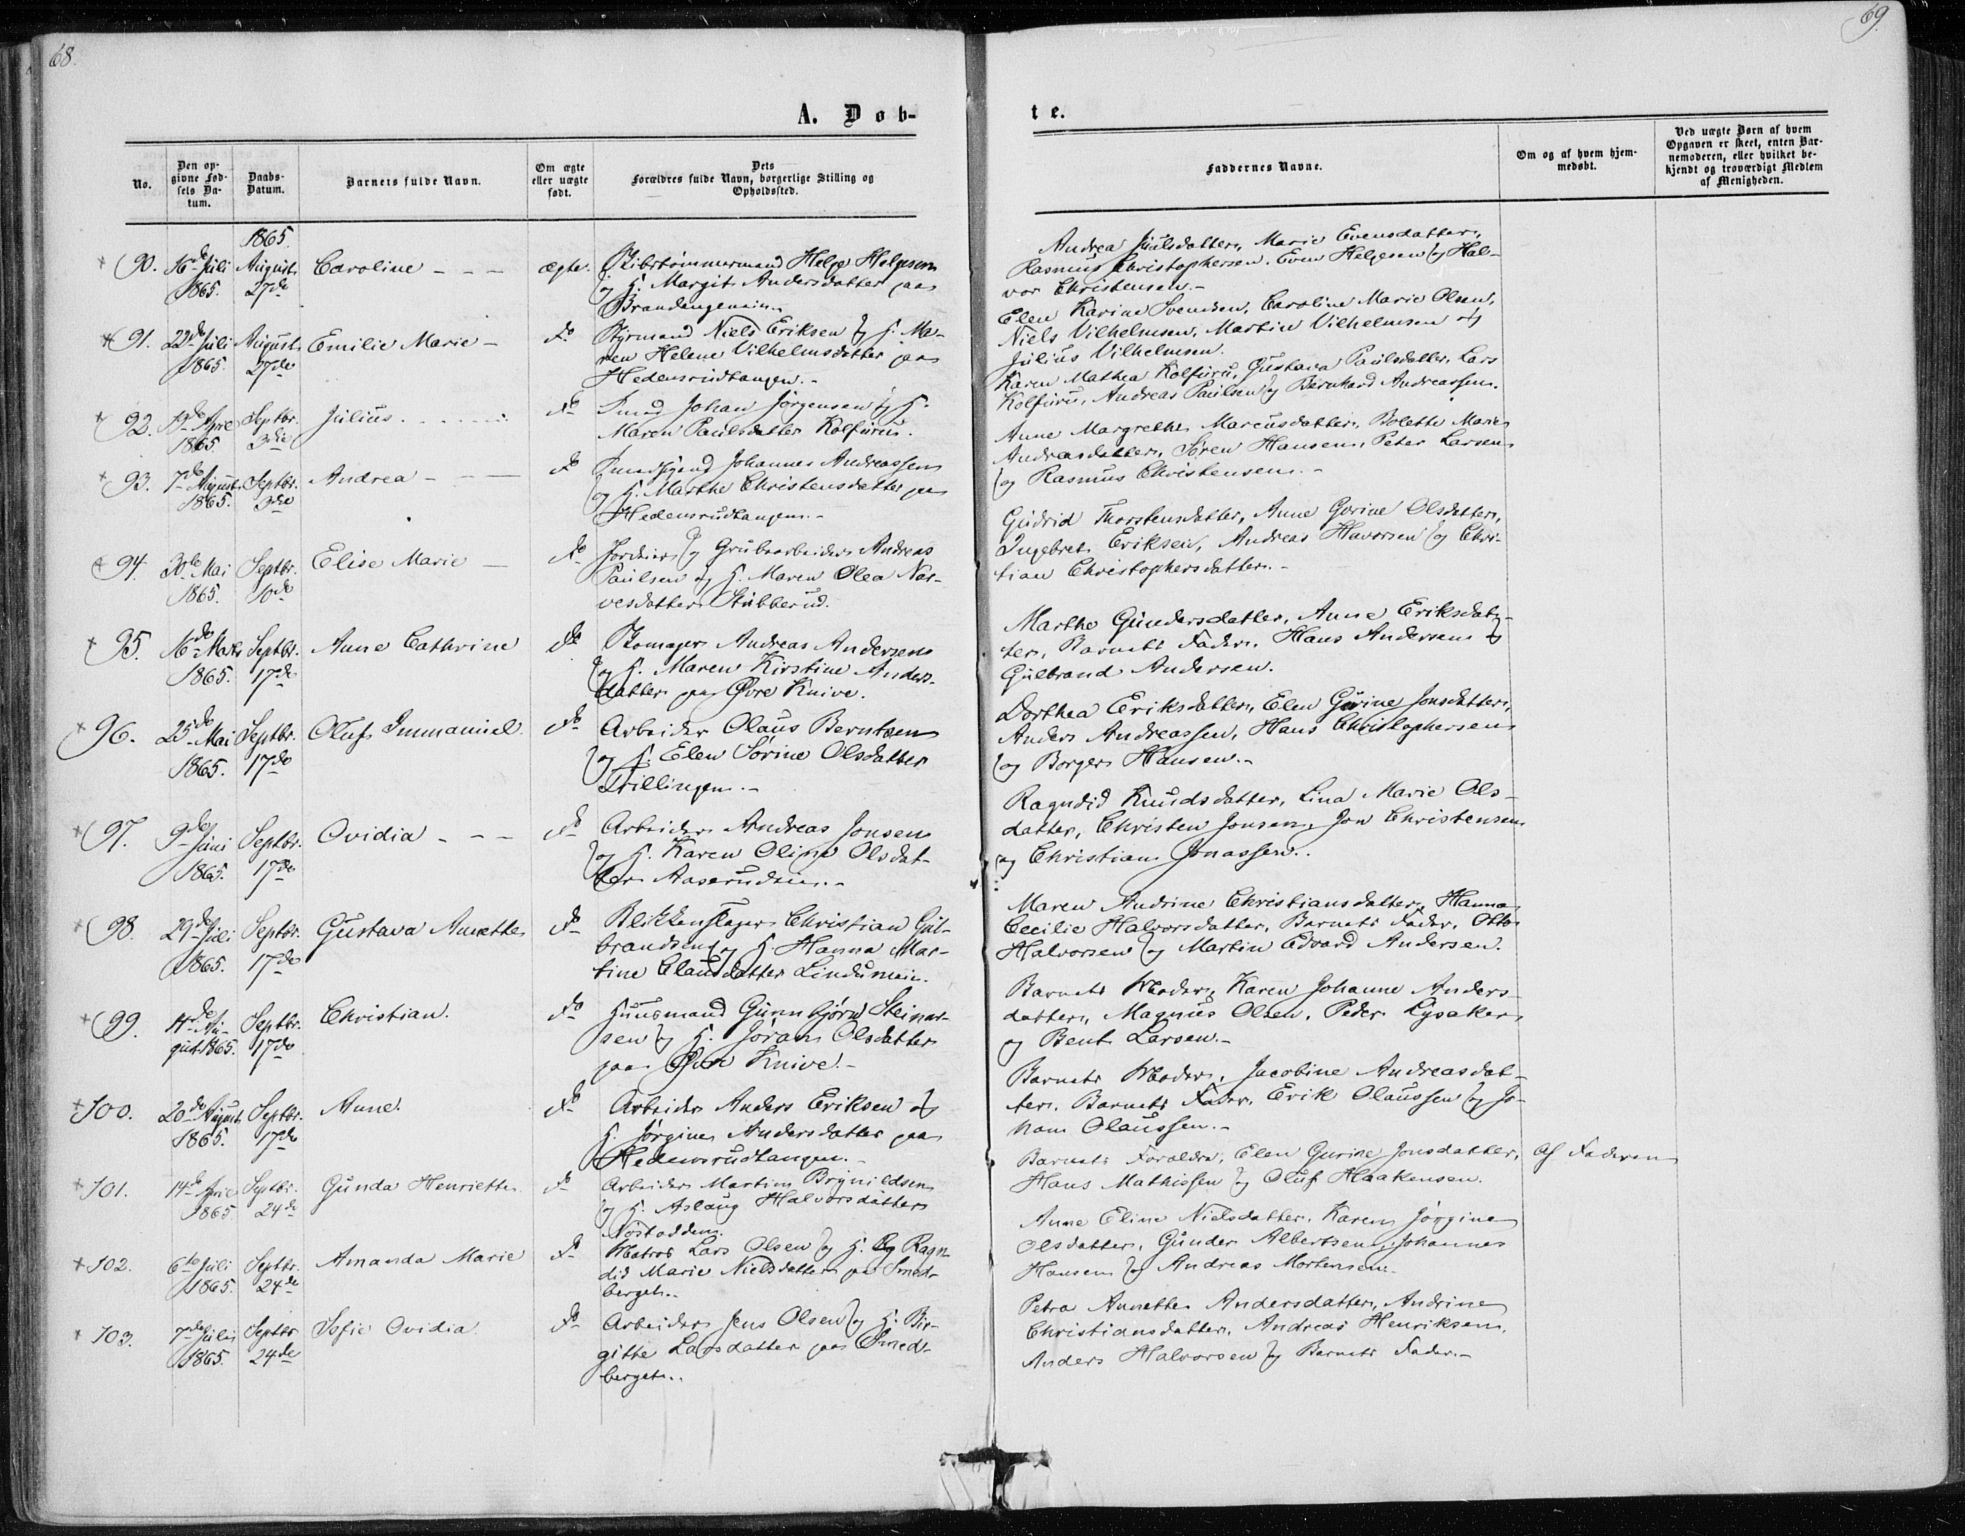 68.
A. Døb-
No.
Den op-
givne Fød-
sels Da-
tum.
Daabs-
Datum.
Barnets fulde Navn.
Om ægte
eller uægte
født.
Dets
Forældres fulde Navn, borgerlige Stilling og
Opholdssted.
1865.
90. 16de Juli August Caroline - - - ægte. Skibstømmermand Helge Helgesen
1865. 27de og H. Margit Andersdatter paa
Brandengeneien.
91. 22de Juli August Emilie Marie - Do Styrmand Niels Eriksen og H. Ma-
1865. 27de ren Helene Vilhelmsdatter paa
Hedensrudtangen.-
92. Apr Septbr. Julius. Do Smed Johan Jørgensen og H.
1865 3die Maren Paulsdatter Kolfuru.
93. 7de August Septbr. Andrea - - Do Smedsvend Johannes Andreassen
1865. 3die og H. Marthe Christensdatter paa
Hedensrudtangen.-
94. 30te Mai Septbr. Elise Marie - Do Jordeier og Grubearbeider Andreas
1865. 10de Paulsen og H. Maren Olea Nar-
vesdatter Stubberud.
95. 16de Marts Septbr. Anne Cathrine Do Skomager Andreas Andersen
1865. 17de og H. Maren Kirstine Anders-
datter paa Øvre Knive.
96. 25de Mai Septbr. Oluf Immanuel. Do Arbeider Olaus Berntsen
1865. 17de og H. Elen Sorine Olsdatter
Trillingen.-
97. 9de Juni Septbr. Ovidia - - - Do Arbeider Andreas Jonsen
1865. 17de og H. Karen Oline Olsdat-
ter Aaserudeien.-
98. 29de Juli Septbr. Gustava Annette Do Blikkenslager Christian Gul-
1865. 17de brandsen og H. Hanna Mar-
tine Clausdatter Lindumeie.
99. Au- Septbr. Christian. Do Huusmand Gunnbjørn Steinar-
gust 1865. 17de sen og H. Joran Olsdatter
paa Øvre Knive.-
100. 20de August Septbr. Anne. Do Arbeider Anders Eriksen og
1865. 17de H. Jørgine Andersdatter paa
Hedensrudtangen.-
101. 14de April Septbr. Gunda Henriette Do Arbeider Martin Brynildsen
1865. 24de og H. Aslaug Halvorsdatter
Nostodden.
102. 6te Juli Septbr. Amanda Marie Do Matros Lars Olsen og H. Ragn-
1865. 24de did Marie Nielsdatter paa Smed-
berget.
103. 7de Juli Septbr Sofie Ovidia. Do Arbeider Jens Olsen og H. Bir-
1865. 24de gitte Larsdatter paa Smed-
berget.
69.
te.
Faddernes Navne.
Om og af hvem hjem-
medøbt.
Ved uægte Børn af hvem
Opgaven er skeet, enten Bar-
nemoderen, eller hvilket be-
kjendt og troværdigt Medlem
af Menigheden.
Andrea Juulsdatter, Marie Evensdatter,
Rasmus Christophersen. Even Helgesen og Hal-
vor Christensen.-
Elen Karine Svendsen, Caroline Marie Olsen,
Niels Vilhelmsen, Martin Vilhelmsen og
Julius Vilhelmsen.
Karen Mathea Kolfuru, Gustava Paulsdatter, Lars
Kolfuru, Andreas Paulsen og Bernhard Andreassen.
Anne Margrethe Marcusdatter, Bolette Marie
Andreasdatter, Søren Hansen, Peter Larsen
og Rasmus Christensen.-
Gudrid Thorstensdatter, Anne Gurine Olsdatter,
Ingebret Eriksen, Andreas Havorsen og Chri-
stian Christophersdatter.-
Marthe Gundersdatter, Anne Eriksdat-
ter, Barnets Fader, Hans Andersen og
Gulbrand Andersen.
Dorthea Eriksdatter, Elen Gurine Jonsdatter,
Anders Andreassen, Hans Christophersen
og Borger Hansen.-
Ragndid Knudsdatter, Lina Marie Ols-
datter, Christen Jonsen, Jon Christensen
og Christian Jonassen.
Maren Andrine Christiansdatter, Hanna
Cecilie Halvorsdatter, Barnets Fader, Otto
Halvorsen og Martin Edvard Andersen.
Barnets Moder, Karen Johanne Anders-
datter, Magnus Olsen, Peder Lysaker
og Bent Larsen.-
Barnets Moder, Jacobine Andreasdat-
ter, Barnets Fader, Erik Olaussen og Jo-
han Olaussen.-
Barnets Forældre, Elen Gurine Jonsdatter, Af Faderen
Hans Mathissen og Oluf Haakensen.
Anne Eline Nielsdatter, Karen Jørgine
Olsdatter, Gunder Albertsen, Johannes
Hansen og Andreas Mortensen.
Petra Annette Andersdatter, Andrine
Christiansdatter, Andreas Henriksen,
Anders Halvorsen og Barnets Fader.-